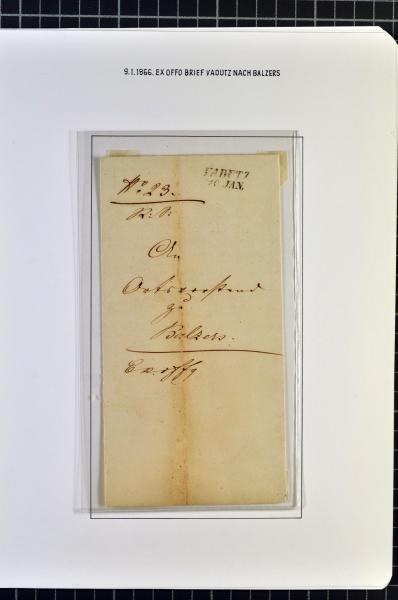 9.1.1866. EX OFFO BRIEF VADUTZ NACH BALZERS
VADUTZ
10 JAN.
No. 23.
An
Ortsvorstand
zu
Balzers.
Ex offo